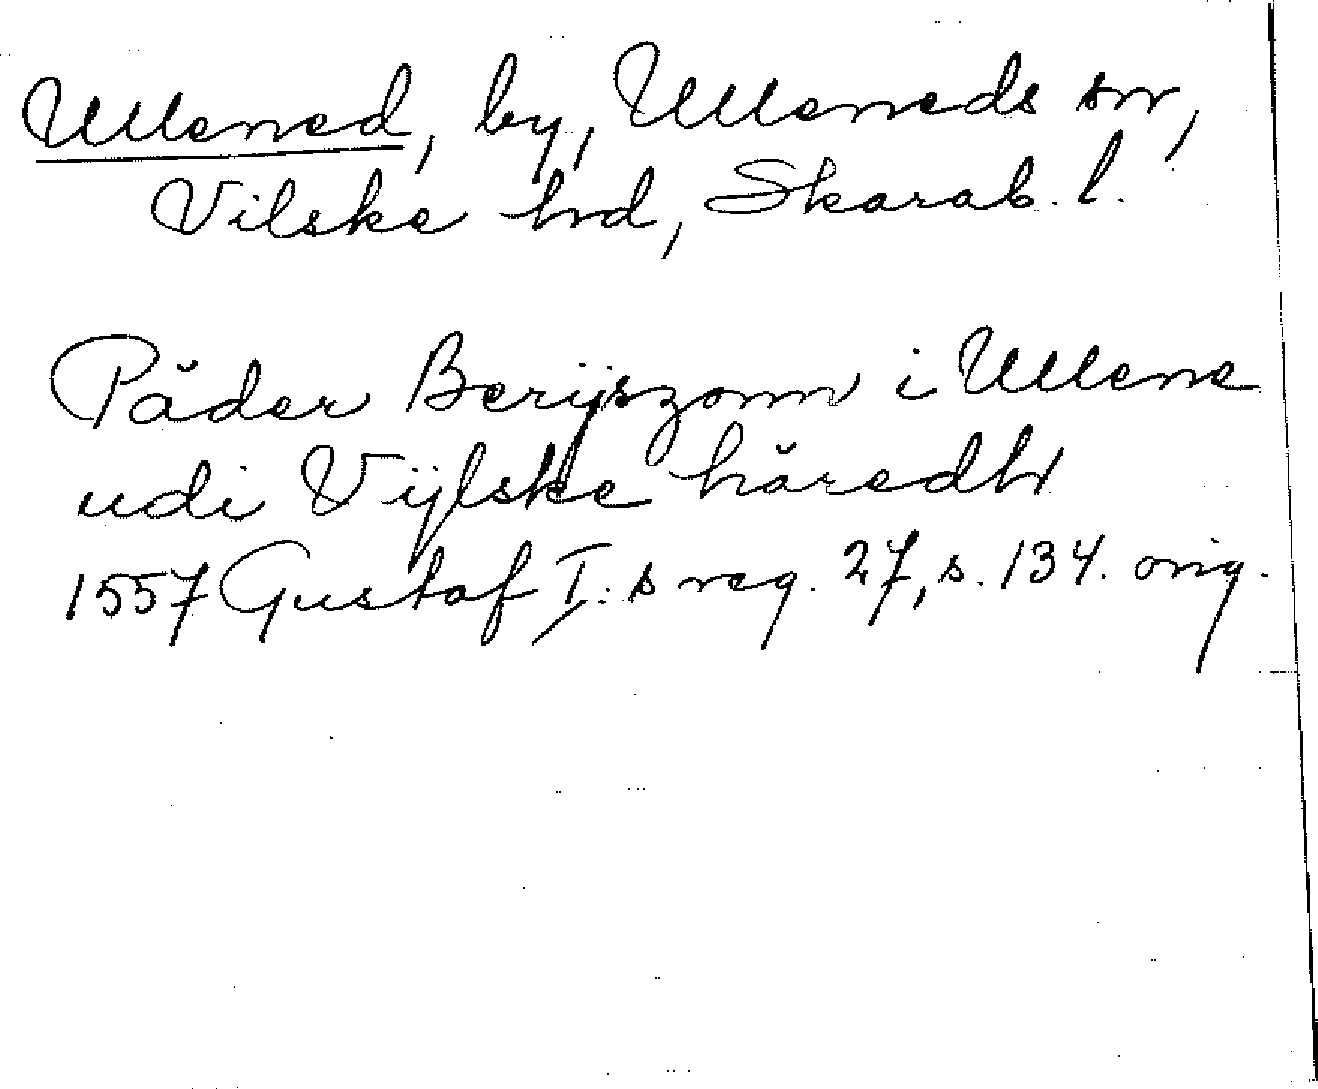 Ullened, by, Ulleneds sn,
Vilske hrd, Skarab. l.
Päder Berijszonn i Ullene
udi Vijlske häredh
1557 Gustaf I:s reg. 27, s. 134. orig.